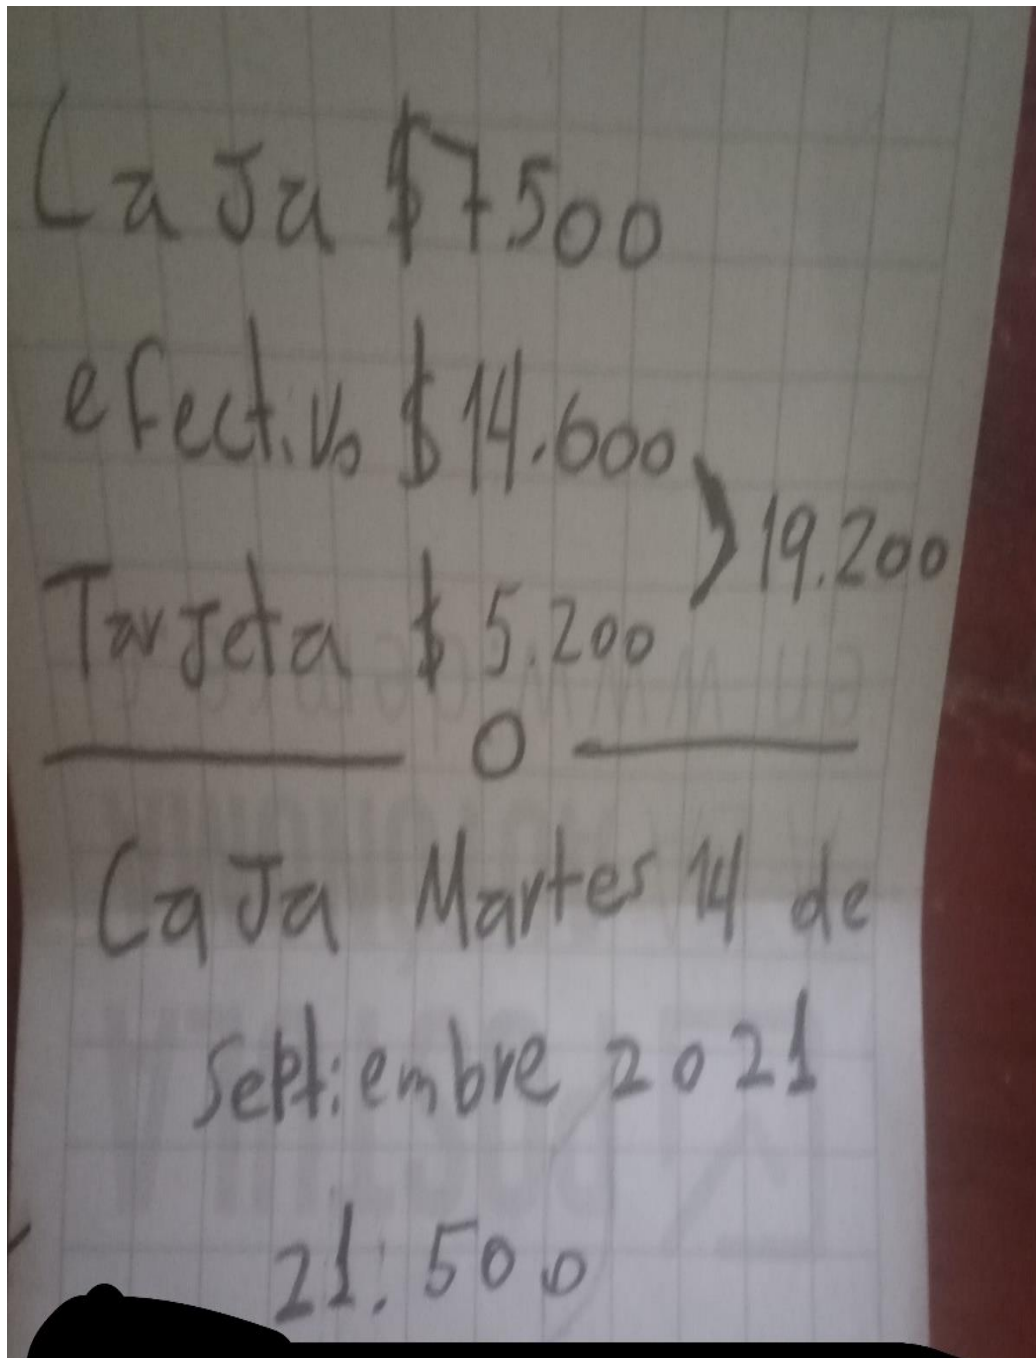 CaJa $7500
efectivo $14.600
TarJeta $5.200
19.200
O
CaJa Martes 14 de
Septiembre 2021
21:500